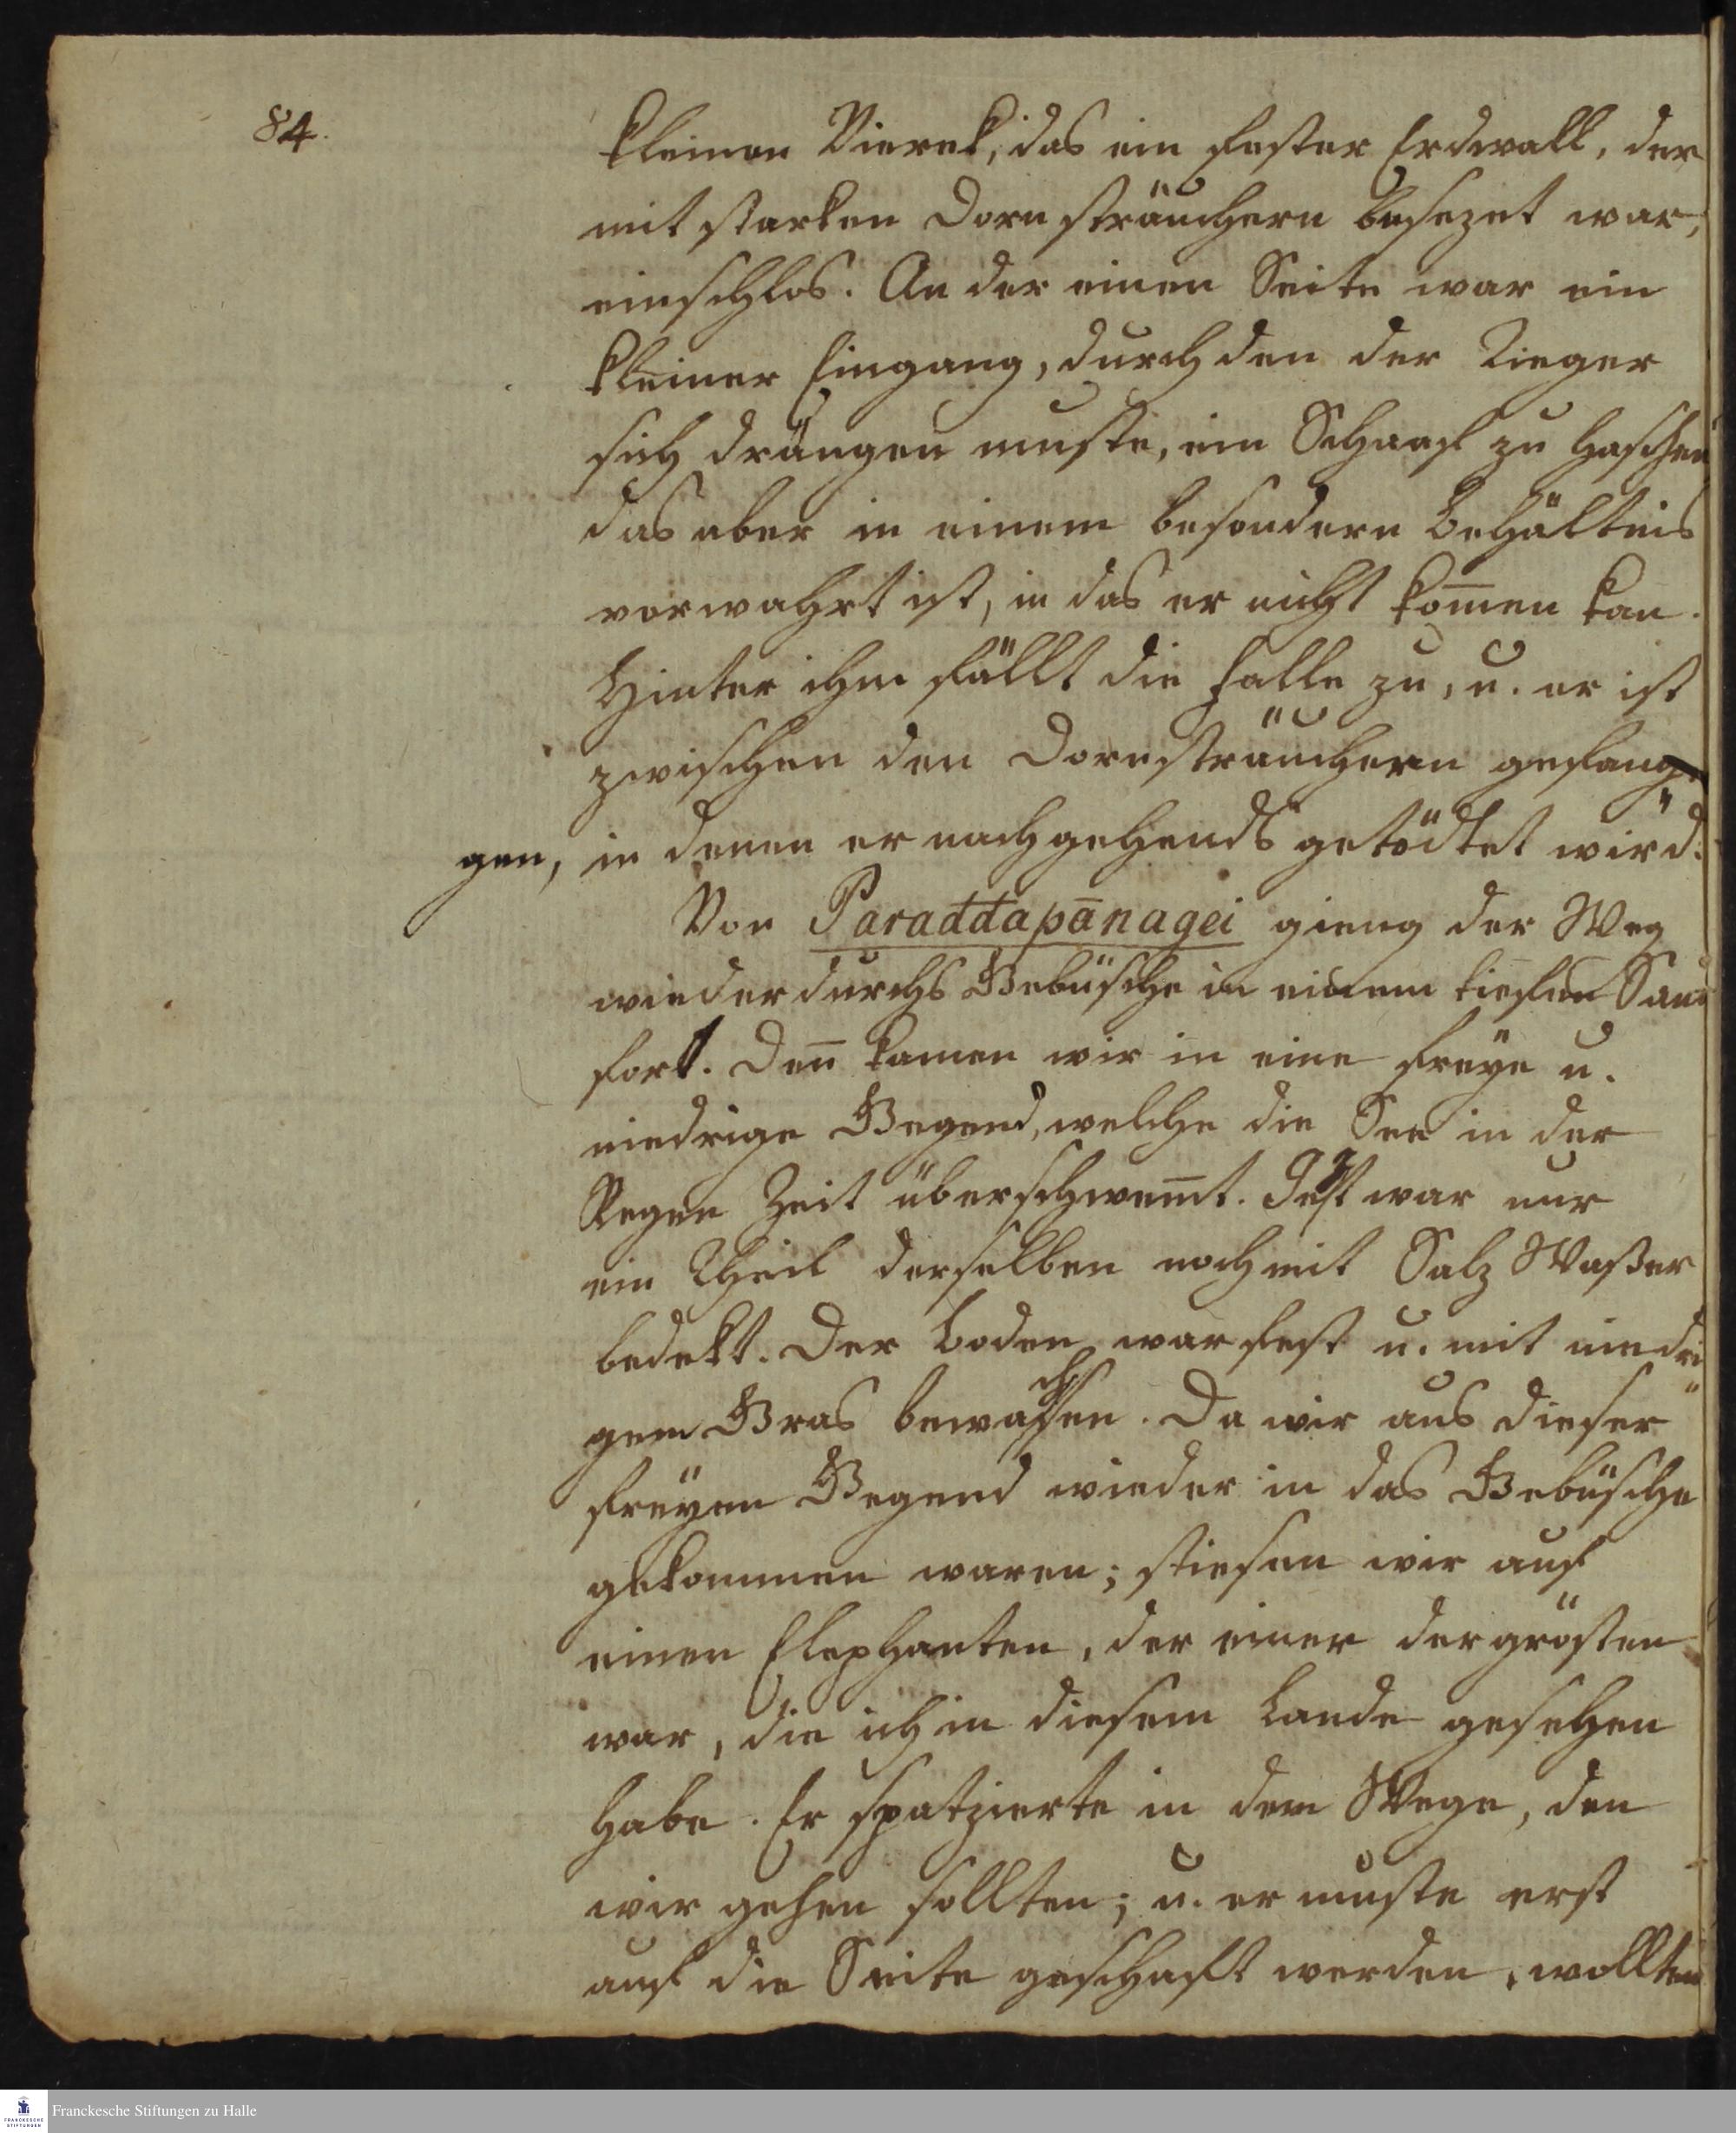 84.
kleinen Vierek, das ein fester Erdwall, der
mit starken Dornsträuchern besezet war,
einschlos. An der einen Seite war ein
kleiner Eingang, durch den der Tieger
sich drängen muste, ein Schaaf zu haschen
das aber in einem besondern Behältnis
verwahrt ist, in das er nicht kom̄en kan.
Hinter ihm fällt die Falle zu, u. er ist
zwischen den Dornsträuchern gefang
gen, in denen er nachgehends getödtet wird.
Von Paraddapānagei gieng der Weg
wieder durchs Gebüsche in einem tiefen Sand
fort. Den̄ kamen wir in eine freye u.
niedrige Gegend, welche die See in der
Regen Zeit überschwem̄t. Jezt war nur
ein Theil derselben noch mit Salz Waßer
bedekt. Der Boden war fest u. mit niedri
gem Gras bewachsen. Da wir aus dieser
freyen Gegend wieder in das Gebüsche
gekommen waren; stiesen wir auf
einen Elephanten, der einer der grösten
war, die ich in diesem Lande gesehen
habe. Er spatzierte in dem Wege, den
wir gehen sollten; u. er muste erst
auf die Seite geschaft werden, wollten
Franckesche Stiftungen zu Halle
FRANCKESCHE
STIFTUNGEN